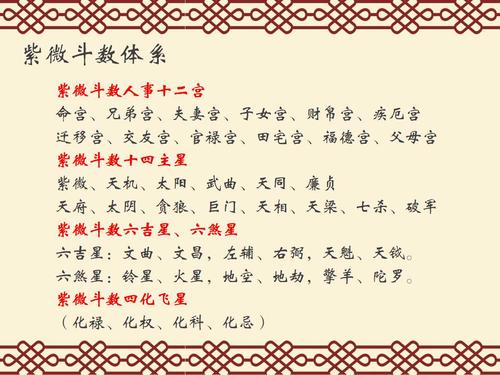 紫微斗数体系
紫微斗数人事十二宫
命宫、兄弟宫、夫妻宫、子女宫、财帛宫、疾厄宫
迁移宫、交友宫、官禄宫、田宅宫、福德宫、父母宫
紫微斗数十四主星
紫微、天机、太阳、武曲、天同、廉贞
天府、太阴、贪狼、巨门、天相、天梁、七杀、破军
紫微斗数六吉星、六煞星
六吉星：文曲、文昌，左辅、右弼，天魁、天钺。
六煞星：铃星、火星，地空、地劫，擎羊、陀罗。
紫微斗数四化飞星
（化禄、化权、化科、化忌）